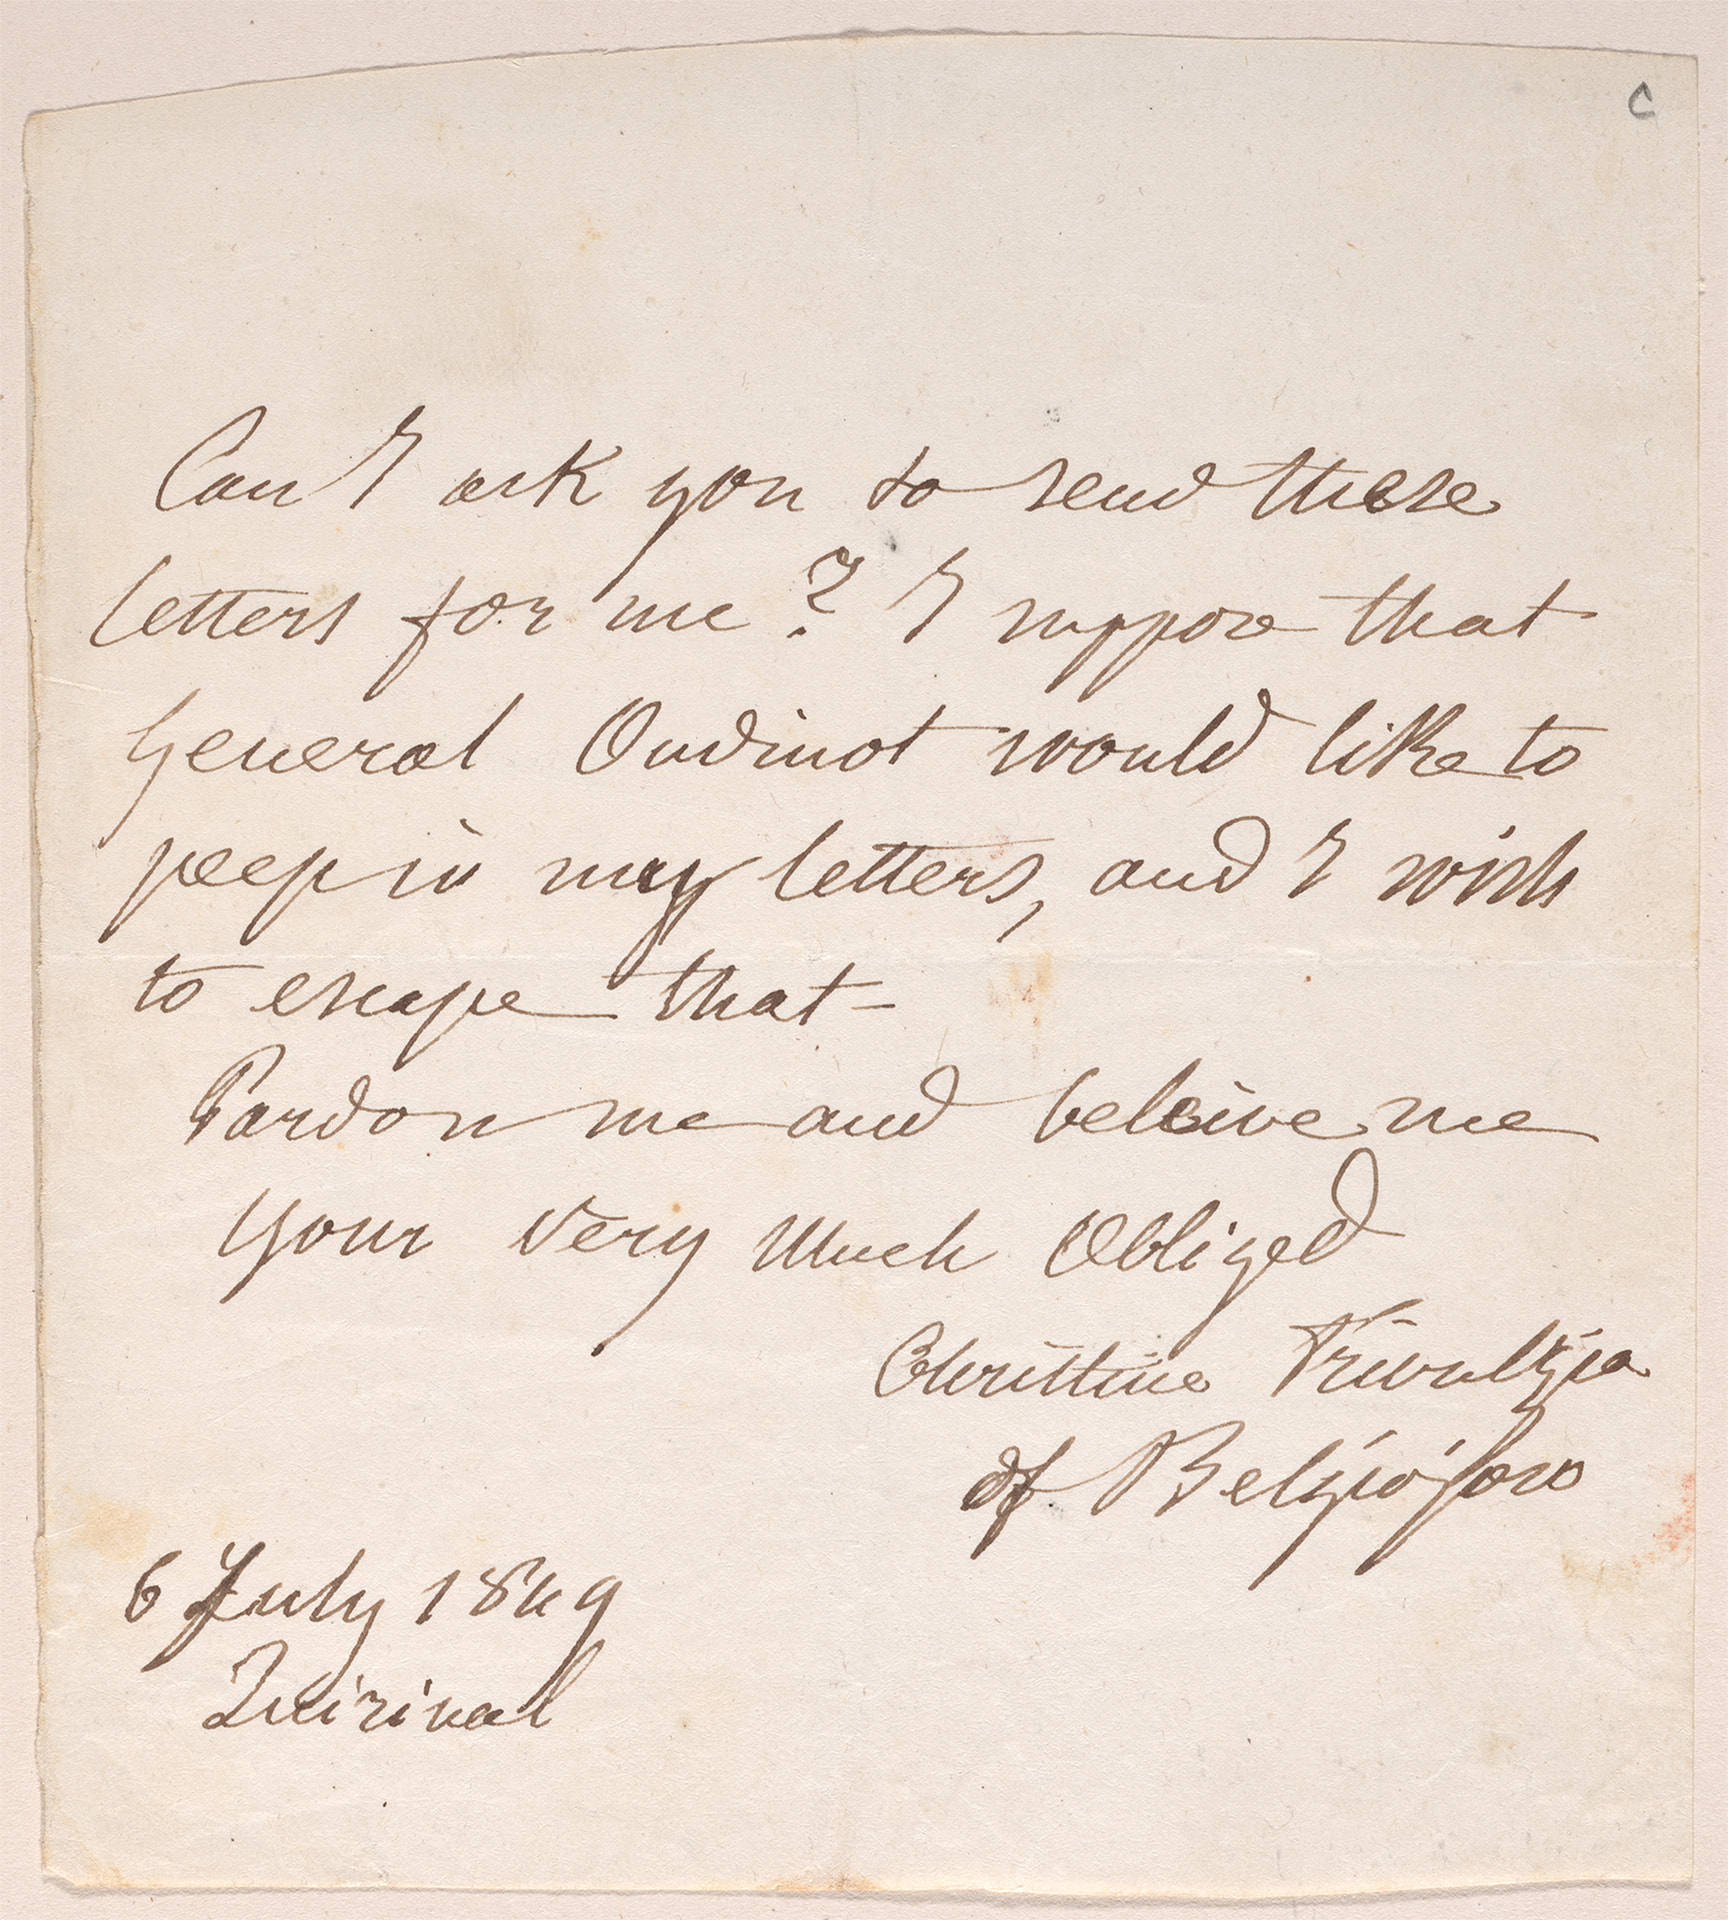 C
Can I ask you to send these
letters for me? I suppose that
General Oudinot would like to
peep in my letters, and I wish
to escape that -
Pardon me and beleive me
Your very Much Obliged
Christine Trivulzio
of Belgiojoso
6 July 1849
Quirinal